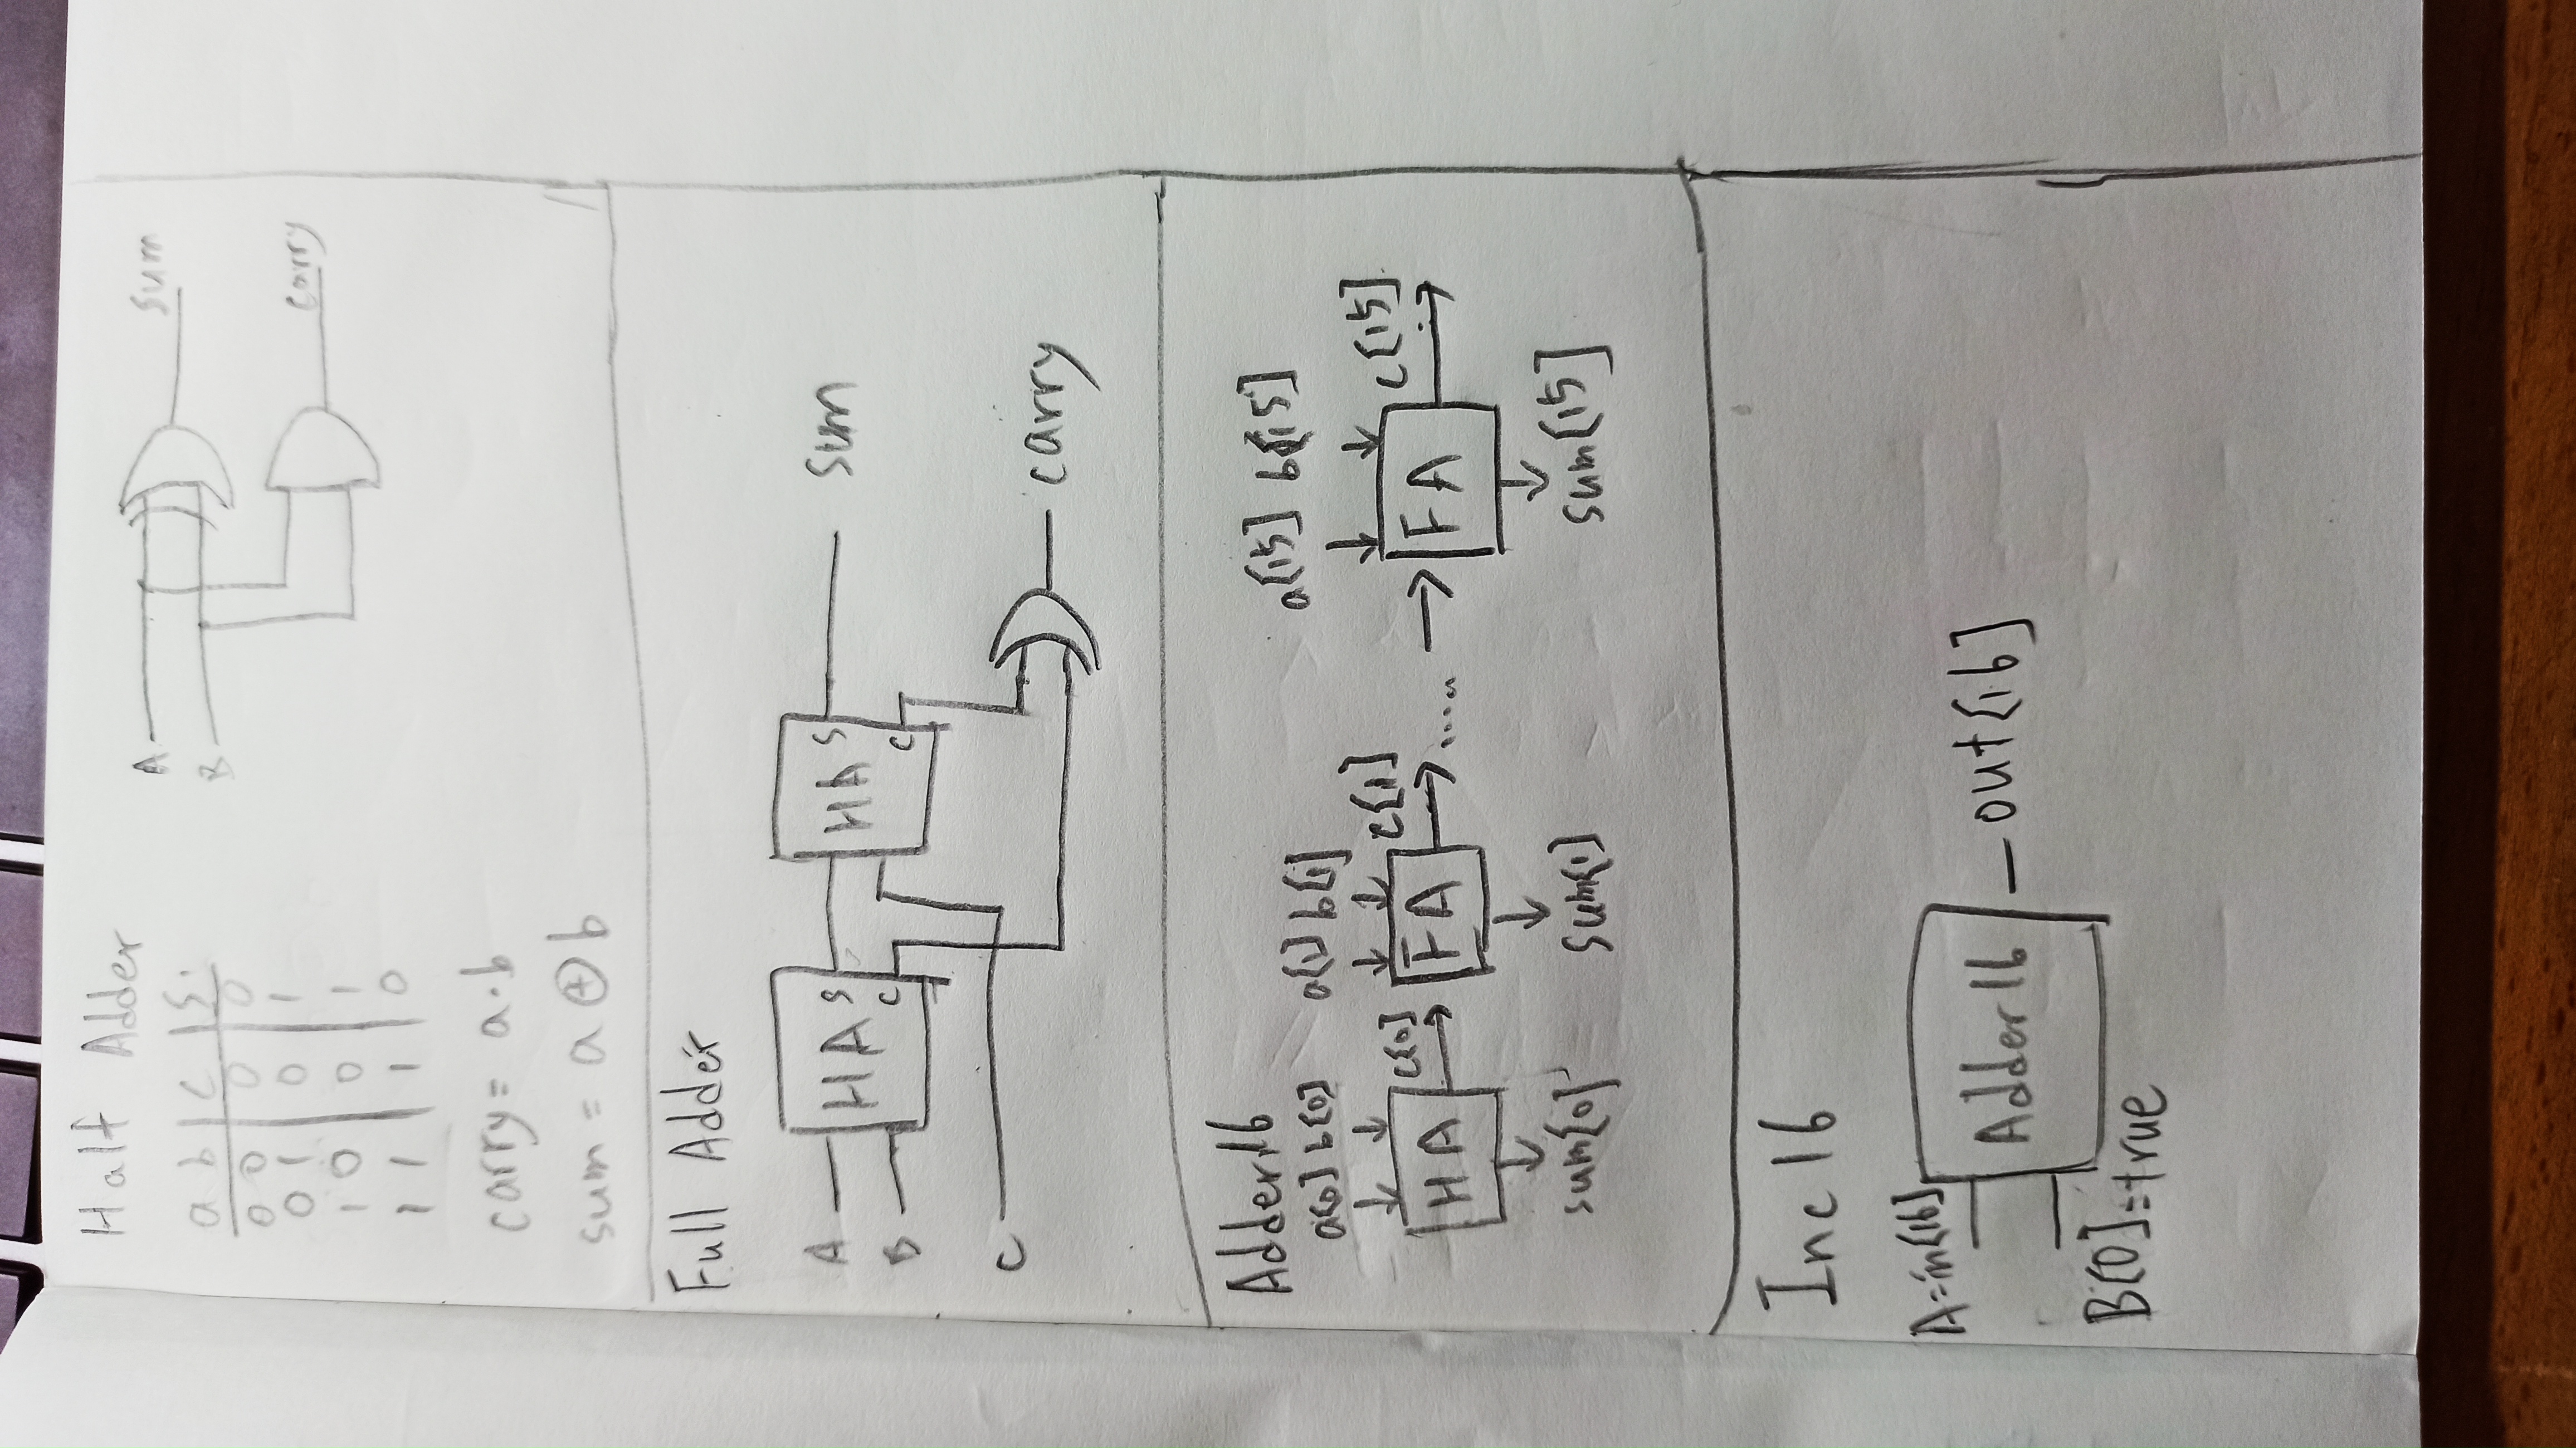 Half Adder
a b c Σ
0 0 0 0
0 1 0 1
1 0 0 1
1 1 1 0
carry = a·b
sum = a ⊕ b
A
B
sum
carry
Full Adder
A
B
C
HA S
C
HA S
C
sum
carry
Adder16
a[0] b[0] a[1] b[1] a[15] b[15]
HA c[0] FA c[1] ..... FA c[15]
sum[0] sum[1] sum[15]
Inc 16
A=in[16]
Adder 16
out[16]
B[0]=true